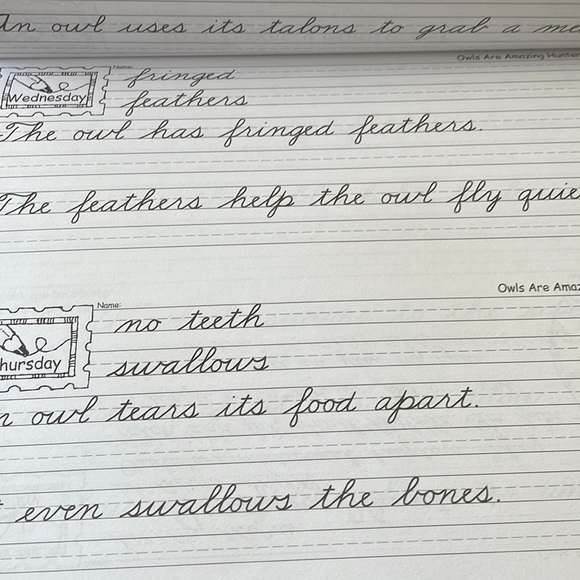 An owl uses its talons to grab a
Owls Are Amazing
Name:
Wednesday
fringed
feathers
The owl has fringed feathers.
The feathers help the owl fly
Owls Are
Name:
Thursday
no teeth
swallows
owl tears its food apart.
even swallows the bones.